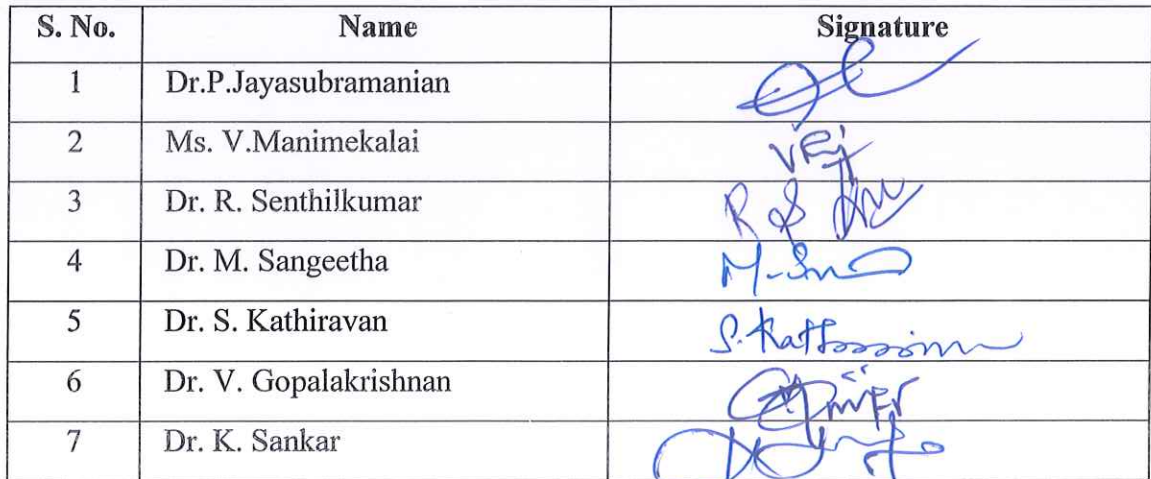 S. No. Name Signature
1 Dr.P.Jayasubramanian
2 Ms. V.Manimekalai
3 Dr. R. Senthilkumar
4 Dr. M. Sangeetha
5 Dr. S. Kathiravan
6 Dr. V. Gopalakrishnan
7 Dr. K. Sankar